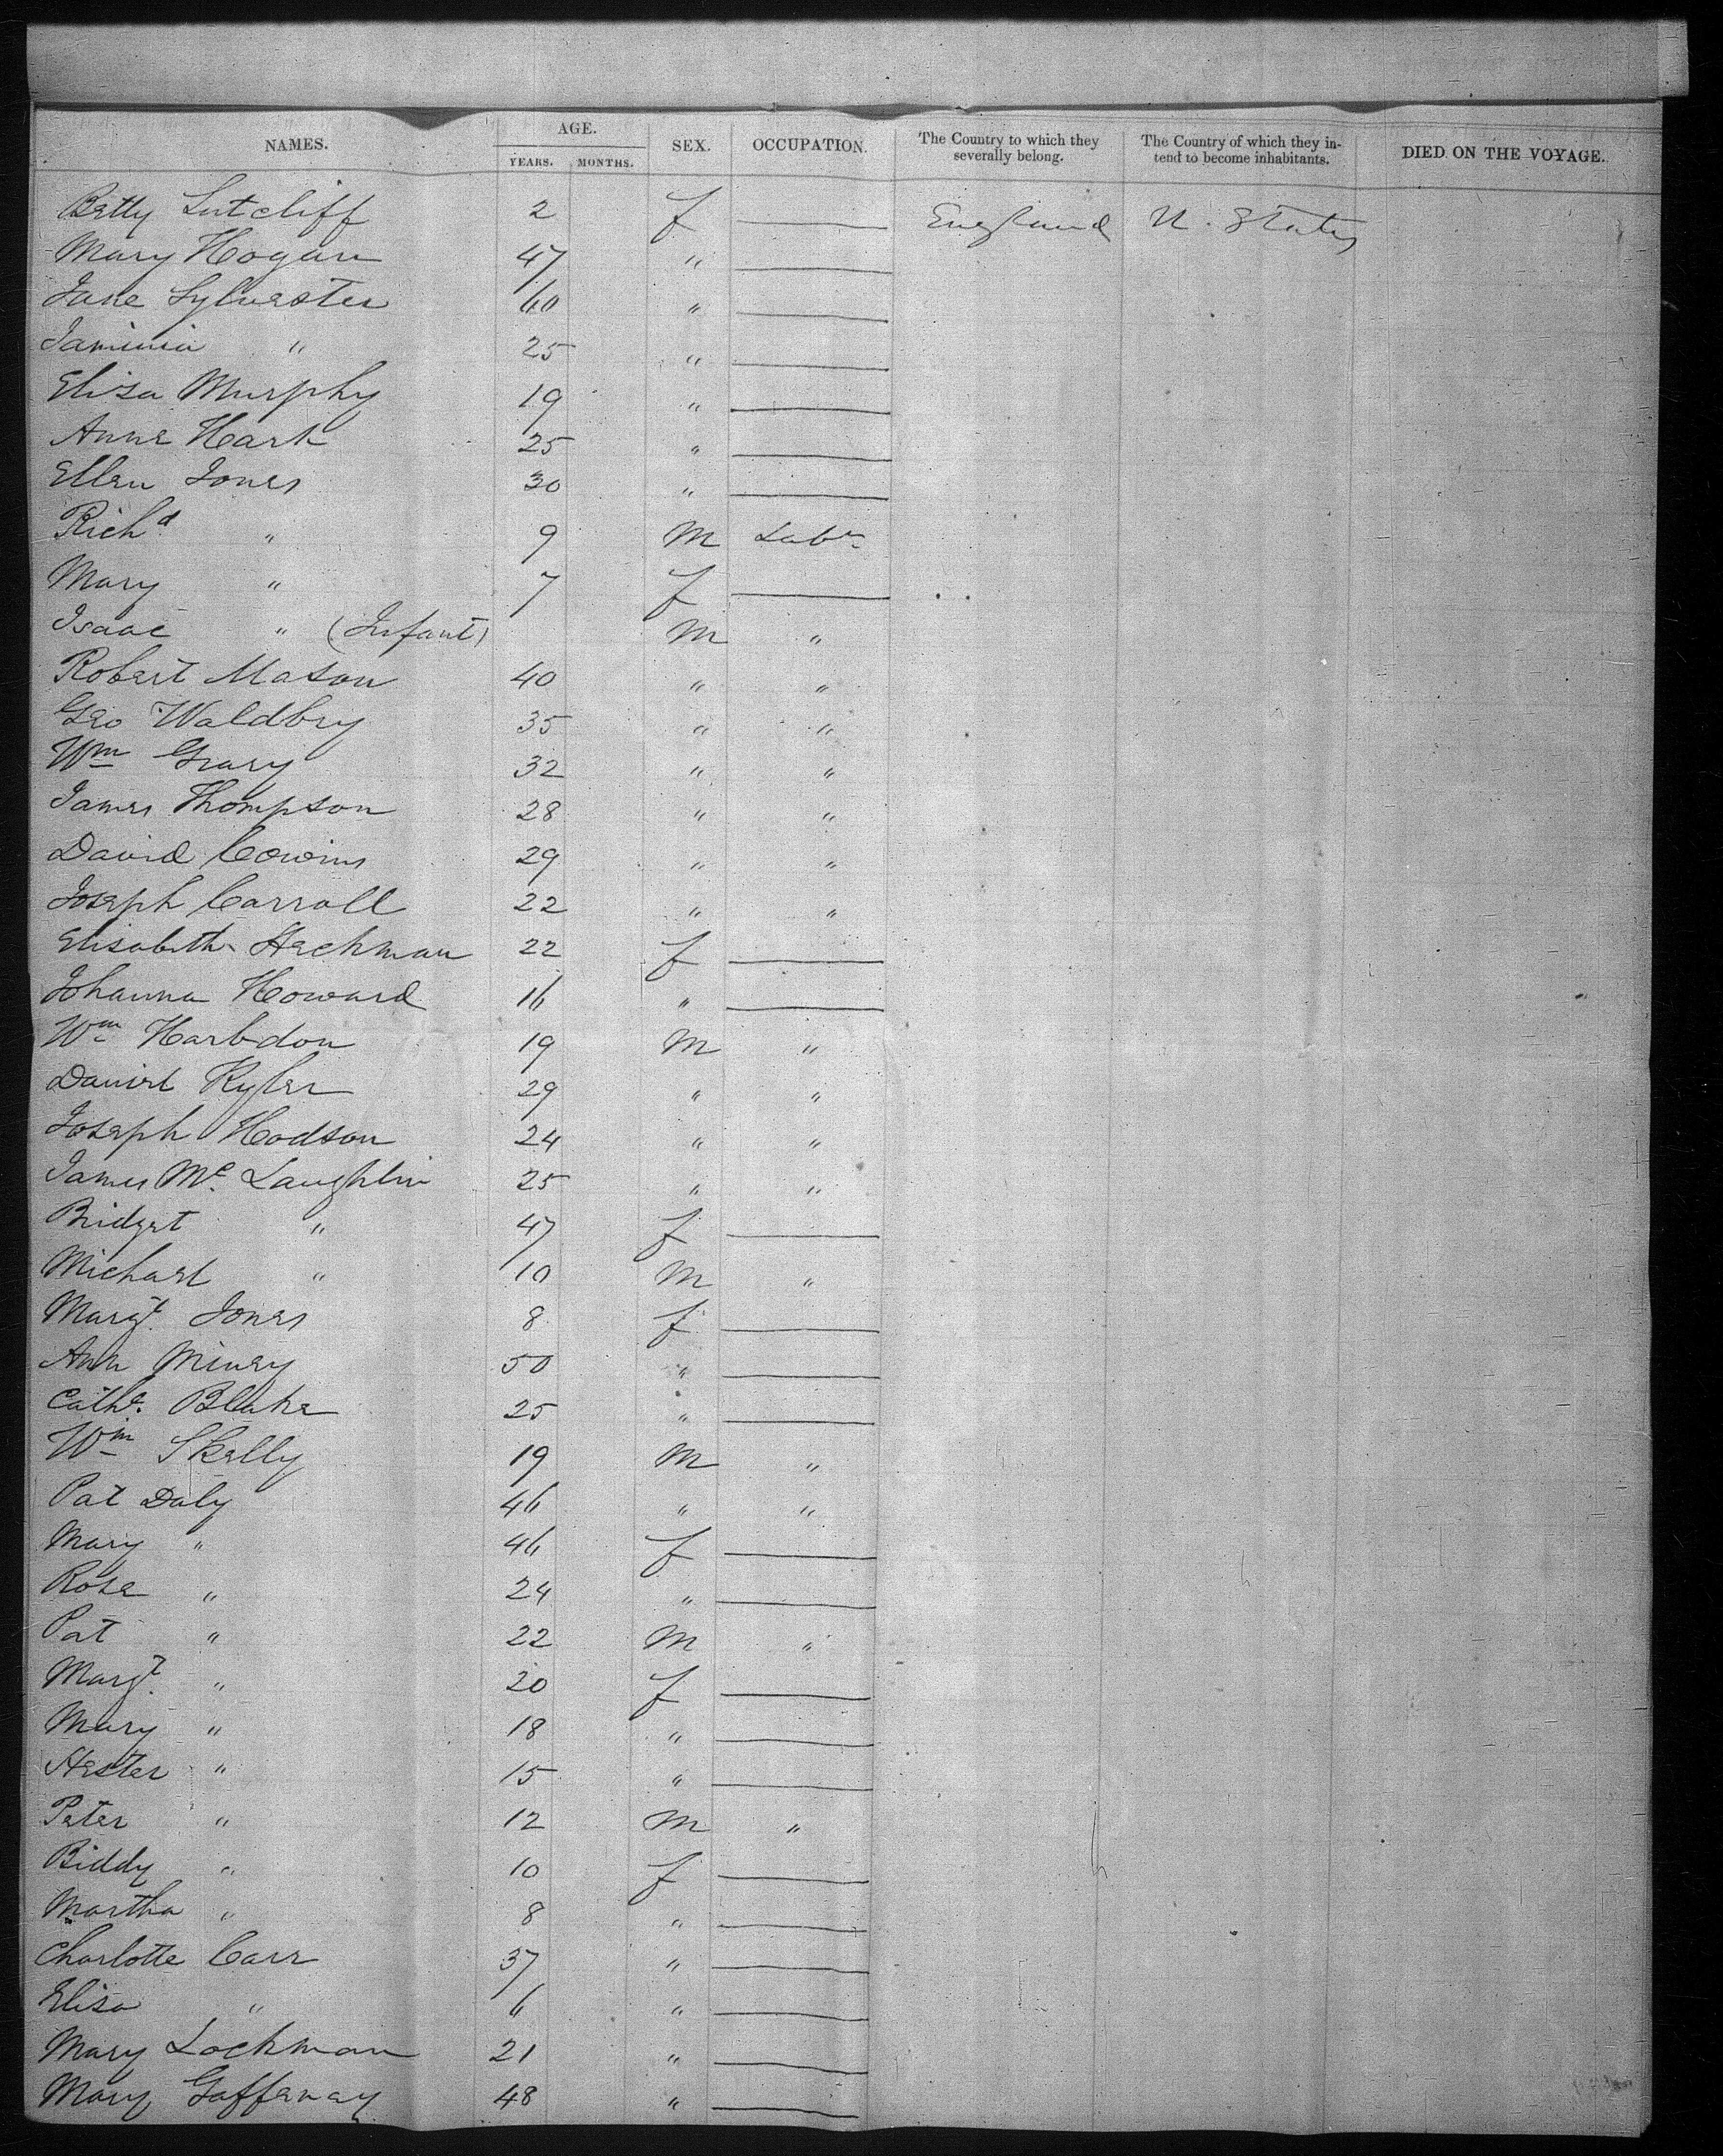 NAMES. AGE. SEX. OCCUPATION. The Country to which they severally belong. The Country of which they intend to become inhabitants. DIED ON THE VOYAGE.
YEARS. MONTHS.
Betty Sutcliff 2 f —— England U. States
Mary Hogan 47 " ——
Jane Sylvester 60 " ——
Jamimia " 25 " ——
Elisa Murphy 19 " ——
Anne Hark 25 " ——
Ellen Jones 30 " ——
Richd. " 9 M Labr
Mary " 7 f ——
Isaac " (Infant) M "
Robert Mason 40 " "
Geo Waldbry 35 " "
Wm Grary 32 " "
James Thompson 28 " "
David Cowins 29 " "
Joseph Carroll 22 " "
Elisabeth Heckman 22 f ——
Johanna Howard 16 " ——
Wm Harbdon 19 M "
Daniel Kyler 29 " "
Joseph Hodson 24 " "
James Mc. Laughlin 25 " "
Bridget " 47 f ——
Michael " 10 M "
Margt. Jones 8 f ——
Ann Miney 50 " ——
Cathe. Blake 25 " ——
Wm Skelly 19 M "
Pat Daly 46 " "
Mary " 46 f ——
Rose " 24 " ——
Pat " 22 M "
Margt. " 20 f ——
Mary " 18 " ——
Hester " 15 " ——
Peter " 12 M "
Biddy " 10 f ——
Martha " 8 " ——
Charlotte Carr 37 " ——
Elisa " 6 " ——
Mary Lockman 21 " ——
Mary Gaffenay 48 " ——